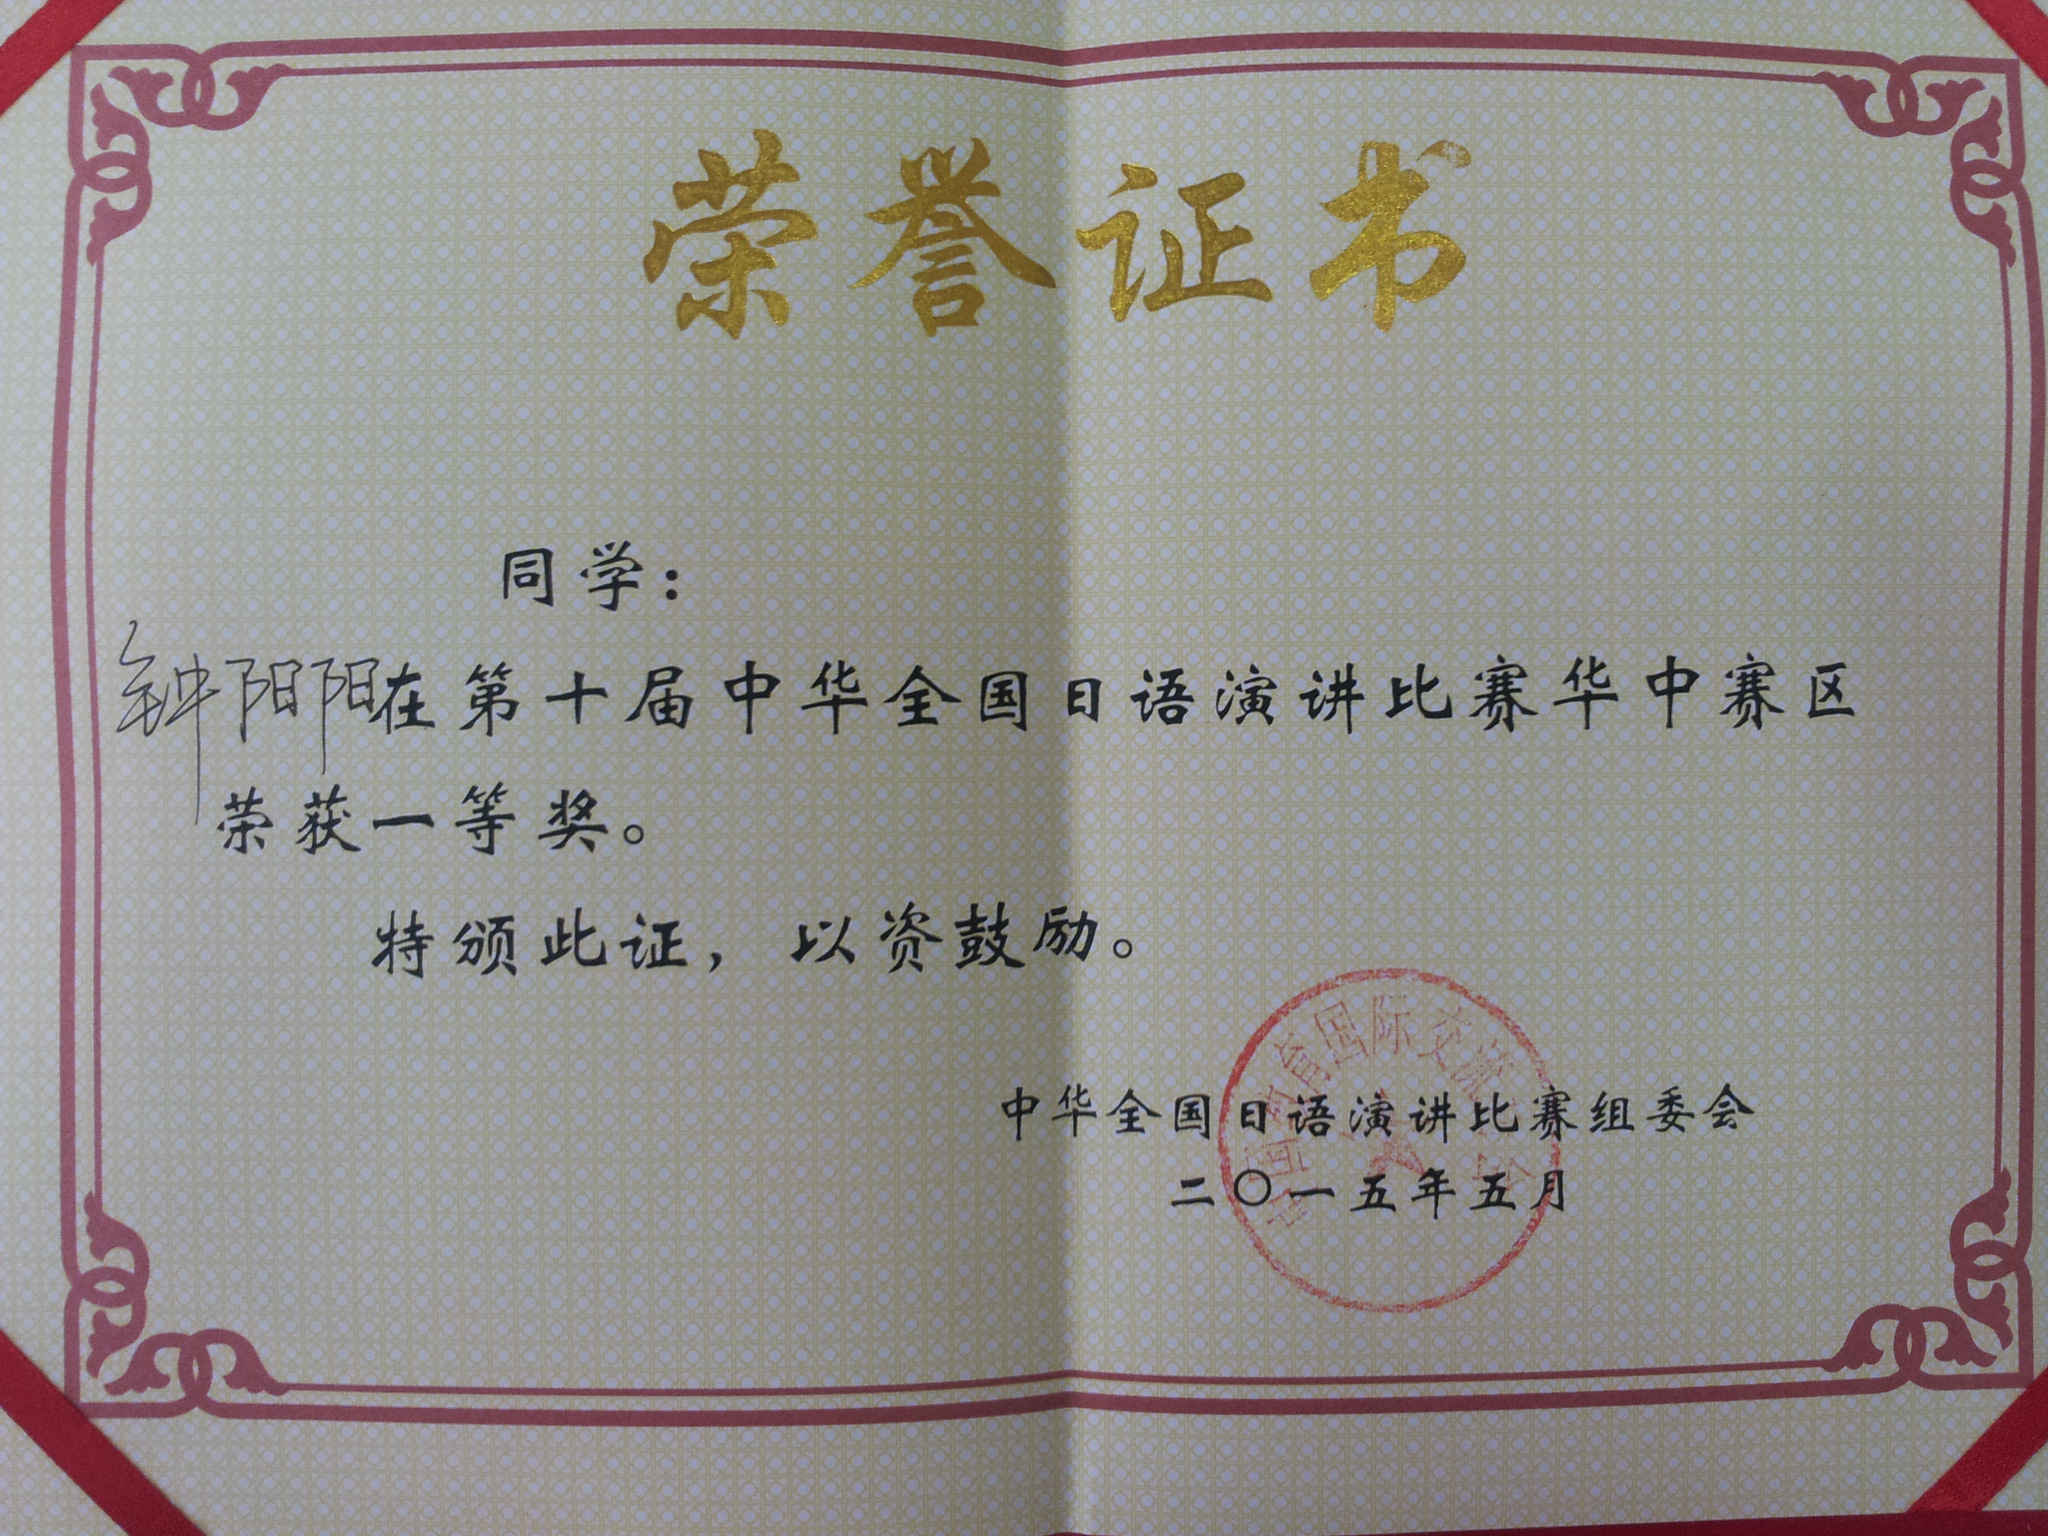 荣誉证书
同学：
钟阳阳在第十届中华全国日语演讲比赛华中赛区
荣获一等奖。
特颁此证，以资鼓励。
中国教育国际交流协会
中华全国日语演讲比赛组委会
二〇一五年五月